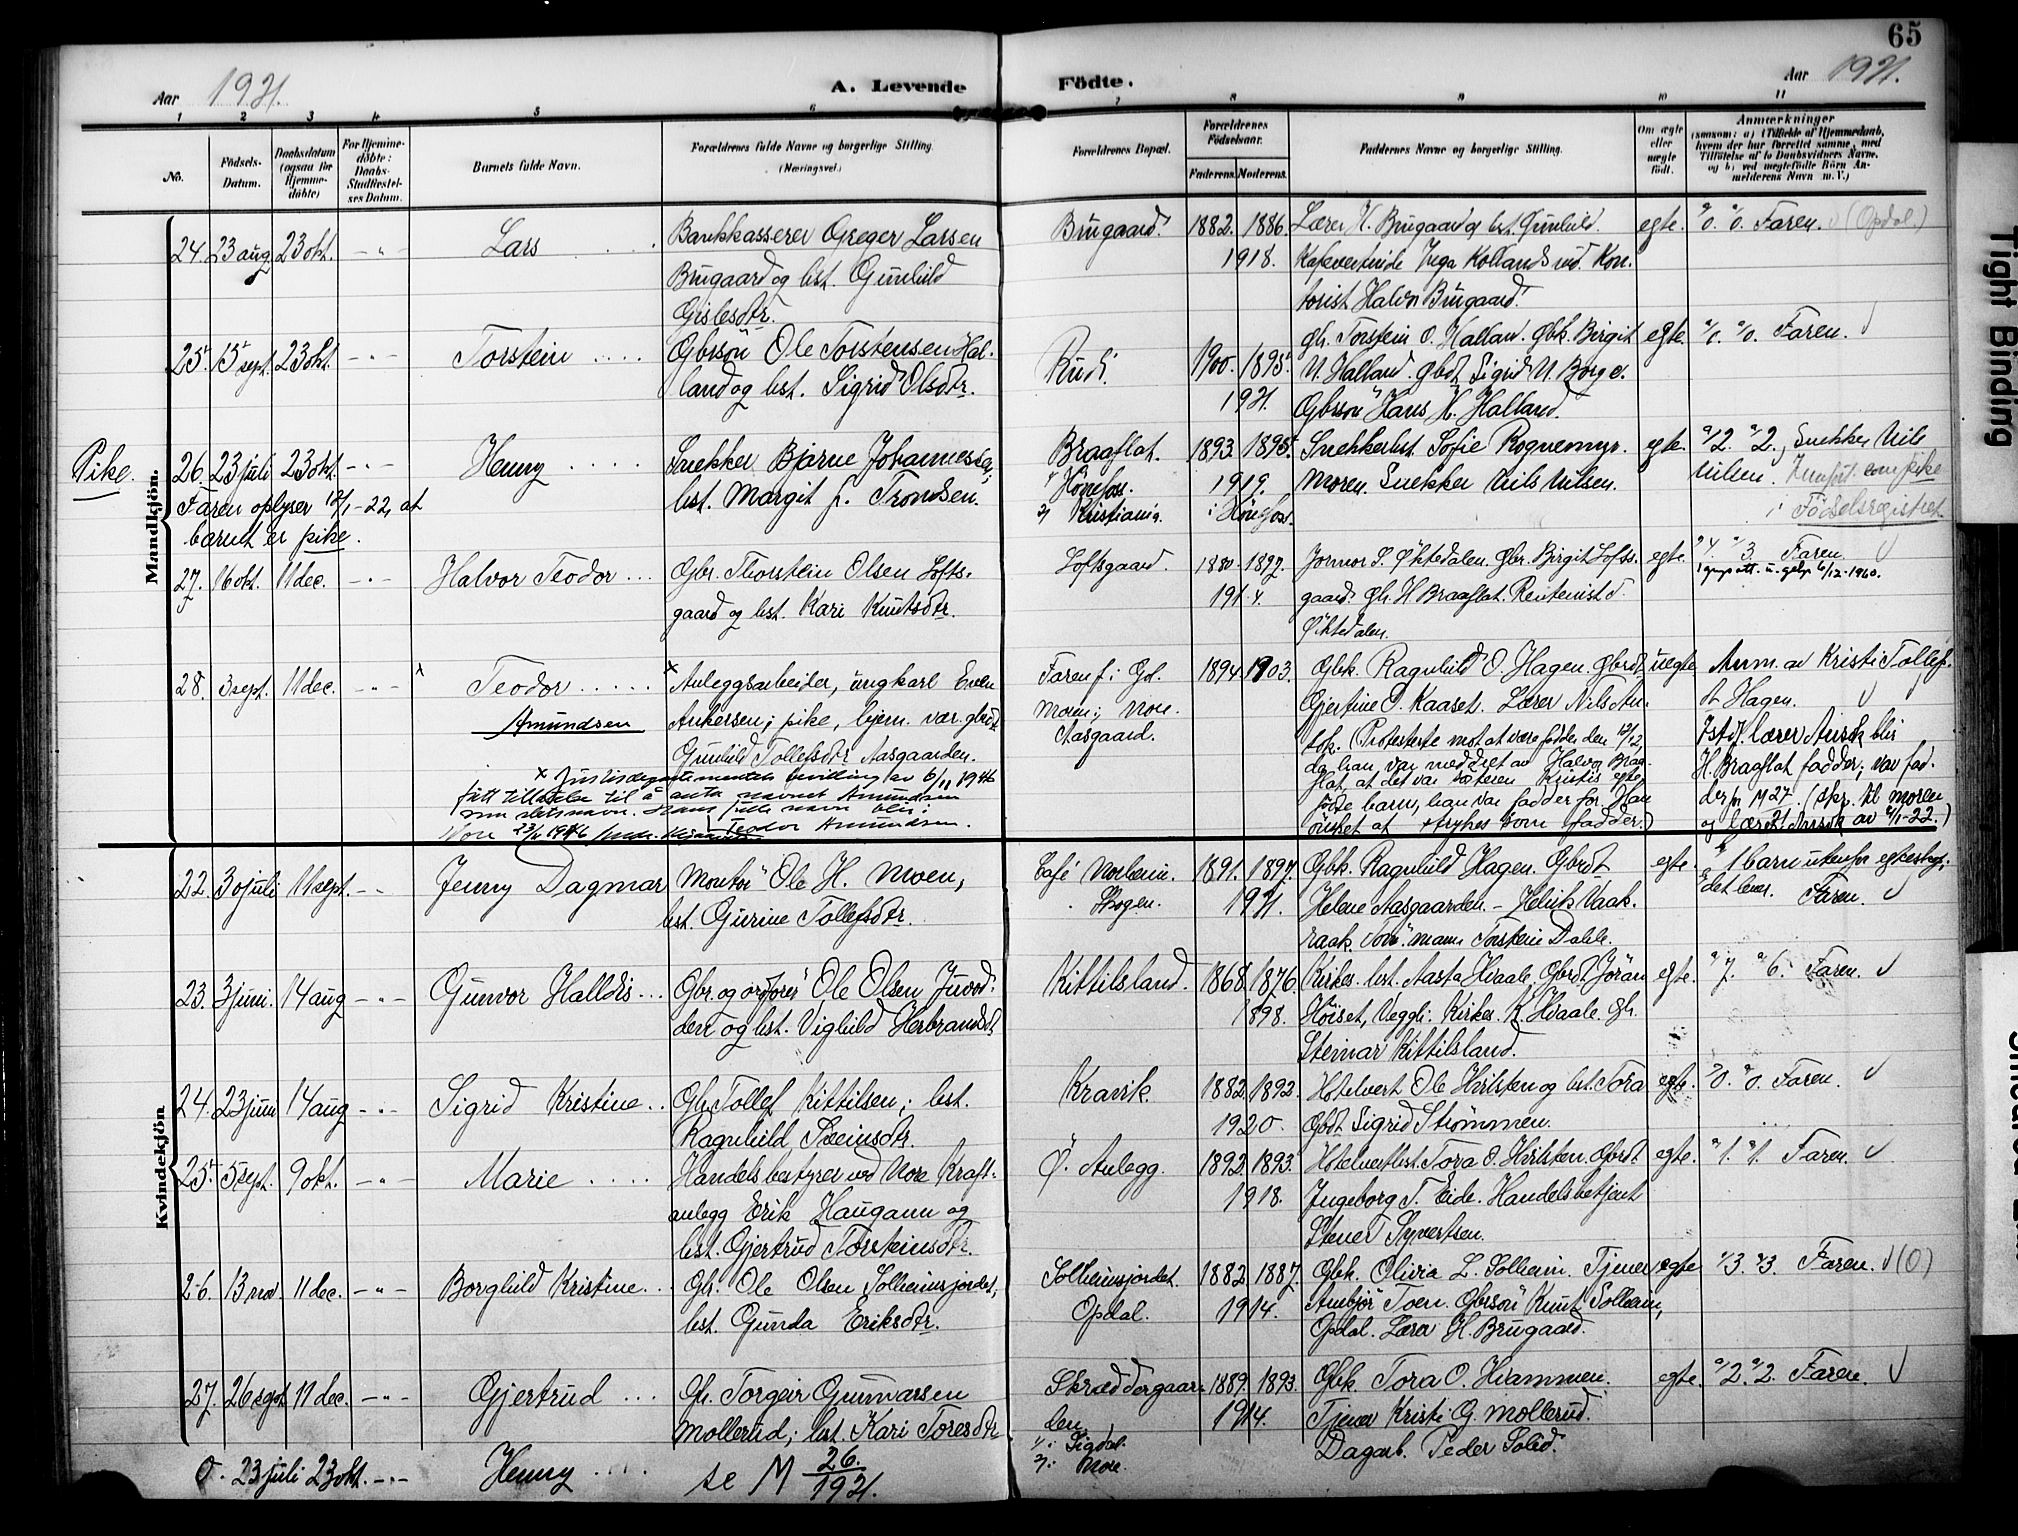 65
Aar 1921. A. Levende Födte. Aar 1921.
1 2 3 4 5 6 7 8 9 10 11
No.
Födsels-Datum.
Daabsdatum (ogsaa for Hjemme-döbte)
For Hjemme-döbte: Daabs-Stadfæstel-ses Datum.
Barnets fulde Navn.
Forældrenes fulde Navne og borgerlige Stilling. (Næringsvei.)
Forældrenes Bopæl.
Forældrenes Födselsaar.
Faderens. Moderens.
Faddernes Navne og borgerlige Stilling.
Om ægte eller uægte født.
Anmærkninger
(saasom: a) i Tilfælde af Hjemmedaab, hvem der har forrettet samme, med Tilföielse af to Daabsvidners Navne, og b) ved uægtefödte Börn An-melderens Navn m. V.)
Mandkjön.
24. 23 aug 23 okt. - " - Lars
Bankkasserer Greger Larsen
Brugaard og hst. Gunhild
Gislesdtr.
Brugaard. 1882. 1886. 1918.
Lærer H. Brugaard og hst. Gunhild.
Kafevertinde Inga Kollandsrud. Kon-
torist Halvor Brugaard.
egte. Faren. (Opdal.)
25. 15 sept. 23 okt. - " - Torstein
Gbrsön Ole Torstensen Hal-
land og hst. Sigrid Olsdtr.
Rud. 1900. 1895. 1921.
gbr. Torstein O. Halland. Gbk. Birgit
N. Halland. Gbdt. Sigrid N. Borge.
Gbrsön Hans H. Halland.
egte. Faren.
Pike.
26. 23 juli 23 okt. - " - Henry
Snekker Bjarne Johannessen,
hst. Margit f. Tronsen.
Braaflat.
Hönefoss.
Kristiania.
1893 1895. 1919. i Hönefoss.
Snekkerhst. Sofie Rognemyr.
Moren. Snekker Nils Nilsen.
egte. Snekker Nils
Nilsen. Innfört som pike
i Födselsregistret.
Faren oplyser 12/1-22, at
barnet er pike.
27. 16 okt. 11 dec. - " - Halvor Teodor
Gbr. Thorstein Olsen Lofts-
gaard og hst. Kari Knutsdtr.
Loftsgaard. 1880. 1892. 1914.
Jomor S. Öktedalen. Gbr. Birgit Lofts-
gaard. Gbr. H. Braaflat. Rentenist T.
Öktedalen.
egte. Faren.
28. 3 sept. 11 dec. - " - x Teodor
Amundsen
x Anleggsarbeider, ungkarl Even
Ankersen; pike, hjem. vær. gbrdt
Gunhild Tollefsdtr Aasgaarden.
x Justisdepartementets bevilling av 6/11 1946
fått tillatelse til å anta navnet Amundsen
som slektsnavn. Hans fulle navn blir:
Teodor Amundsen.
Nore 23/11 1946
Faren f. i Gol.
Moren i Nore.
Aasgaard.
1894. 1903.
Gbk. Ragnhild O. Hagen. Gbrdt.
Gjertine O. Kaaset. Lærer Nils An-
sok. (Protesterte mot at være fadder den 12/12,
da han var meddelt av Halvor Braa-
flat, at det var söstren Kristis egte-
födte barn, han var fadder for. Han
önsket at strykes som fadder.)
uegte Anm. av Kristi Tollefs-
dt Hagen.
Istdf. lærer Ansok blir
H. Braaflat fadder; var fad-
der for No 27. (skr. til moren
og lærer Ansok av 4/1-22.)
Kvindekjön.
22. 30 juli 11 sept. - " Jenny Dagmar
Montör Ole H. Moen,
hst. Gurine Tollefsdtr.
Café Norheim.
Skogen.
1891. 1897. 1921.
Gbk. Ragnhild Hagen. Gbrdt.
Helene Aasgaarden. - Helik Vaak-
raak. Tömmermann Torstein Dahle.
egte. 1 barn utenfor egteskap;
det lever. Faren.
23. 3 juni. 14 aug - " - Gunvor Halldis
Gbr. og ordförer Ole Olsen Juvod-
den og hst. Vighild Herbrandsdt.
Kittilsland. 1868. 1876. 1898.
Kirkes. hst. Aasta Hvaale, Gbrdt. Jöran
Höiset, Veggli. Kirkes. K. Hvaale. Gbr.
Steinar Kittilsland.
egte. Faren.
24. 23 juni 14 aug - " - Sigrid Kristine
Gbr. Tollef Kittilsen; hst.
Ragnhild Sveinsdtr.
Kravik. 1882. 1892. 1920.
Hotelvert Ole Hvilsten og hst. Tora
Gbdt. Sigrid Strömmen.
egte. Faren.
25. 5 sept. 9 okt. - " - Marie
Handelsbestyrer ved Nore Kraft-
anlegg Erik Haugann og
hst. Gjertrud Torsteinsdtr.
Ö. Anlegg. 1892. 1893. 1918.
Hotelverthst. Tora O. Hvilsten. Gbrdt.
Ingeborg T. Eide. Handelsbetjent
Stener Syvertsen.
egte. Faren.
26. 13 nov. 11 dec. - " - Borghild Kristine
Gbr. Ole Olsen Solheimsjordet,
hst. Gunda Eriksdtr.
Solheimsjordet.
Opdal.
1882. 1887. 1914.
Gbk. Olivia L. Solheim. Tjener
Ambjör Toen. Gbrsön Knut Solheim,
Opdal. Lærer H. Brugaard.
egte Faren. (O)
27. 26 sept 11 dec. - " - Gjertrud
Gbr. Torgeir Gunnarsen
Mollerud; hst. Kari Toresdtr
Skræddergaar-
den
i Sigdal.
i Nore.
1889. 1893. 1914.
Gbk. Tora O. Hvammen.
Tjener Kristi G. Mollerud.
Dagarb. Peder Solid.
egte. Faren.
0. 23 juli 23 okt. - " - Henry
se M 26/1921.
Tight Binding